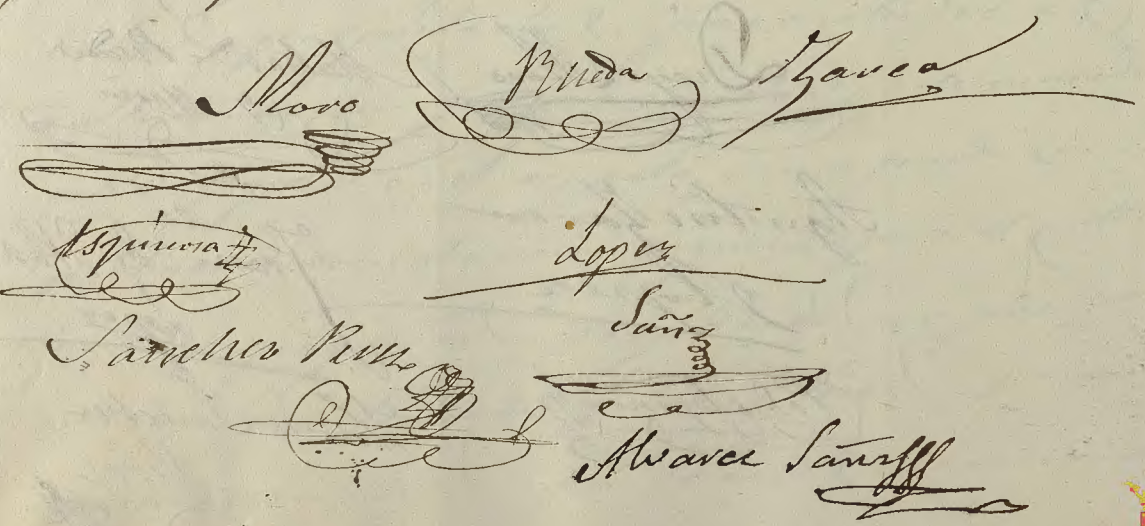 Moro Rueda Zarca
Espinosa
Lopez
Sanchez Perez
Sañz
Alvarez Sañz